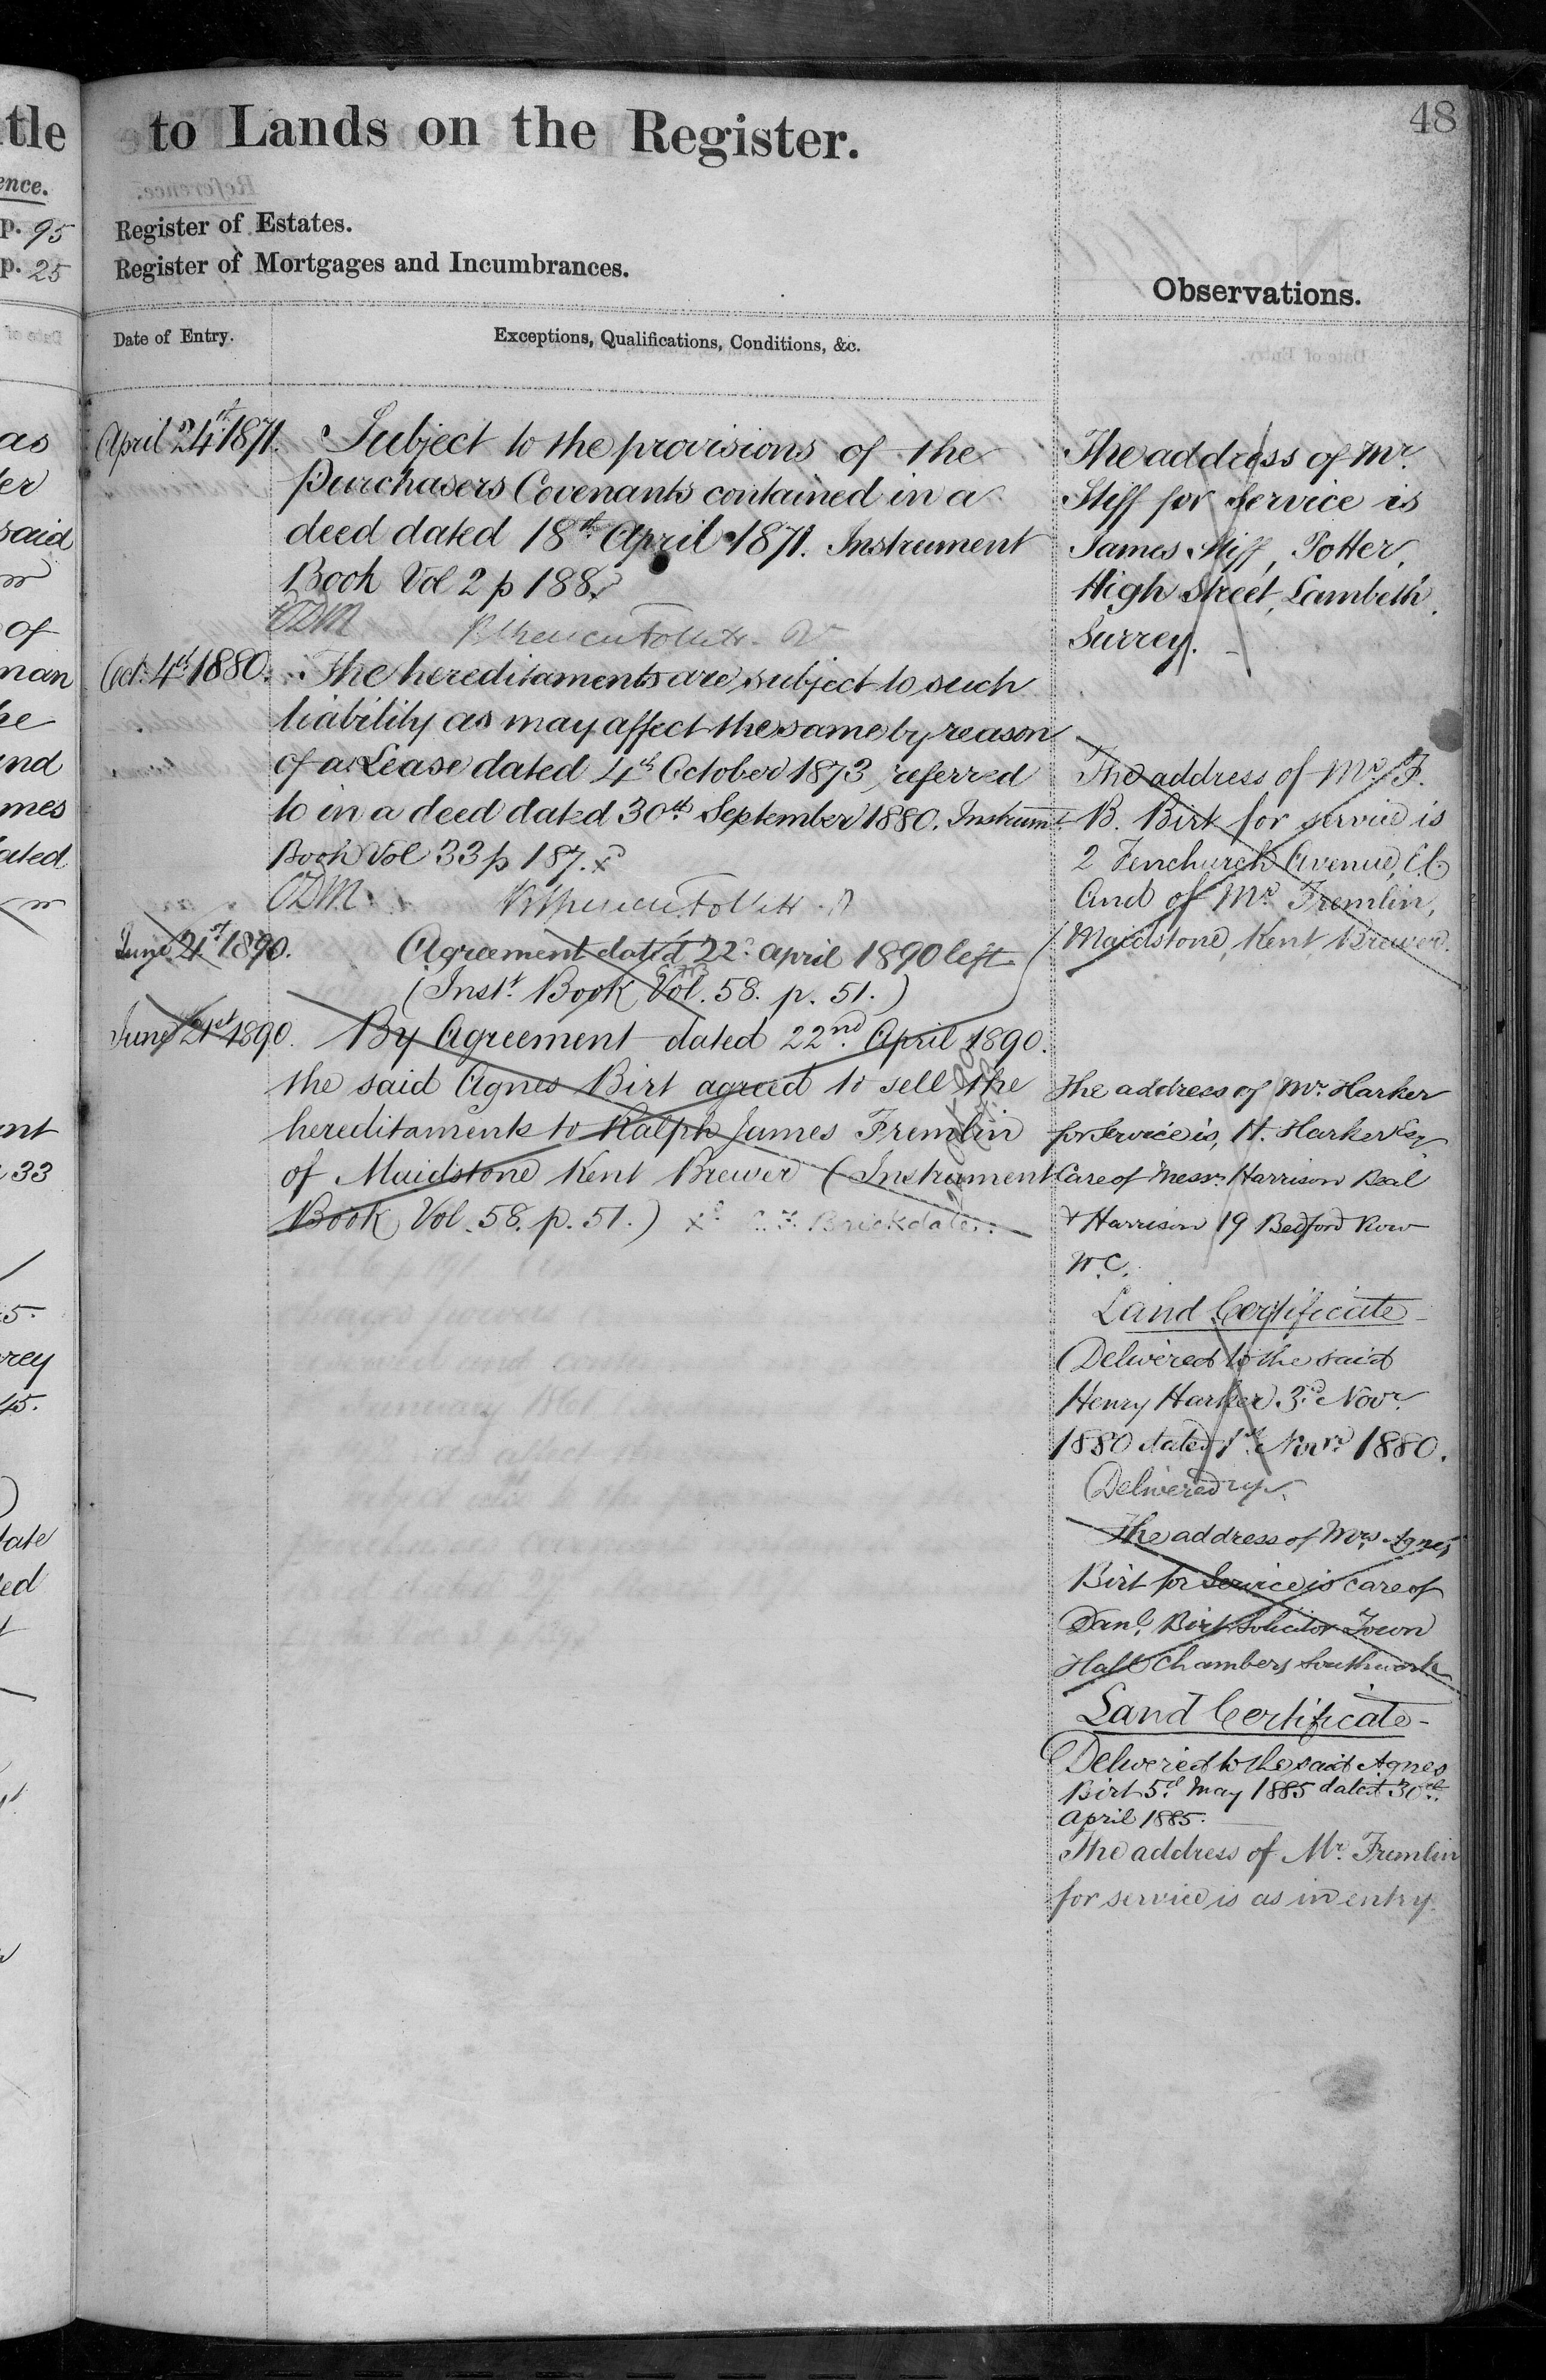 48
to Lands on the Register.
Register of Estates.
Register of Mortgages and Incumbrances.
Date of Entry.
Exceptions, Qualifications, Conditions, &c.
April 24th 1871.
Subject to the provisions of the
Purchasers Covenants contained in a
deed dated 18th April 1871. Instrument
Book Vol 2 p 188.
Oct. 4th 1880.
The hereditaments are subject to such
liability as may affect the same by reason
of a Lease dated 4th October 1873, referred
to in a deed dated 30th September 1880. Instrumt.
Book Vol 33 p 187.
June 21st 1890.
Agreement dated 22d April 1890 left
(Inst. Book Vol. 58. p. 51.)
June 21st 1890.
By Agreement dated 22nd April 1890.
the said Agnes Birt agreed to sell the
hereditaments to Ralph James Fremlin
of Maidstone Kent Brewer (Instrument
Book Vol. 58. p. 51.) C. F. Brickdale.
Observations.
The address of Mr.
Stiff for Service is
James Stiff, Potter,
High Street, Lambeth.
Surrey.
The address of Mr. F.
B. Birt for service is
2 Fenchurch Avenue, E.C.
And of Mr. Fremlin,
Maidstone, Kent, Brewer.
The address of Mr. Harker
for Service is, H. Harker Esq,
Care of Messrs. Harrison Beal
& Harrison 19 Bedford Row
W.C.
Land Certificate
Delivered to the said
Henry Harker 3d Novr.
1880 dated 1st Novr. 1880.
Delivered up.
The address of Mrs Agnes
Birt for Service is care of
Danl. Birt Solicitor Town
Hall Chambers Southwark
Land Certificate
Delivered to the said Agnes
Birt 5th May 1885 dated 30th
April 1885.
The address of Mr. Fremlin
for service is as in entry.
tle
ence.
p. 95
p. 25
as
er
said
of
man
he
and
mes
ated
nt
33
5.
rey
45.
late
ed